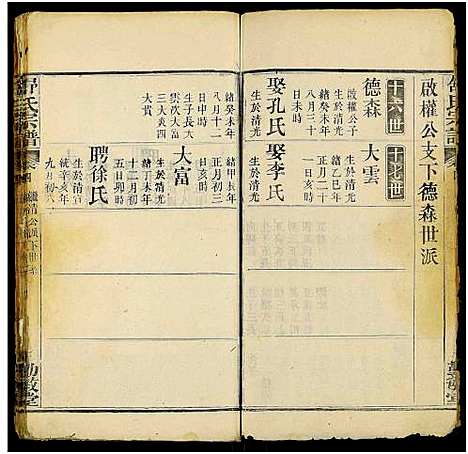 啟權公支下德森世派
十六世
十七世
德森
啟權公子
生於清光
緒癸未年
八月三十
日未時
娶孔氏
生於清光
緒癸未年
八月十二
日申時
生子長大
雲次大富
三大亥四
大貫
大雲
生於清光
緒乙巳年
正月二十
一日亥時
娶李氏
生於清光
緒甲辰年
正月初三
日亥時
大富
生於清光
緒丁未年
十二月初
五日卯時
聘徐氏
生於清宣
統辛亥年
九月初六
舒氏宗譜